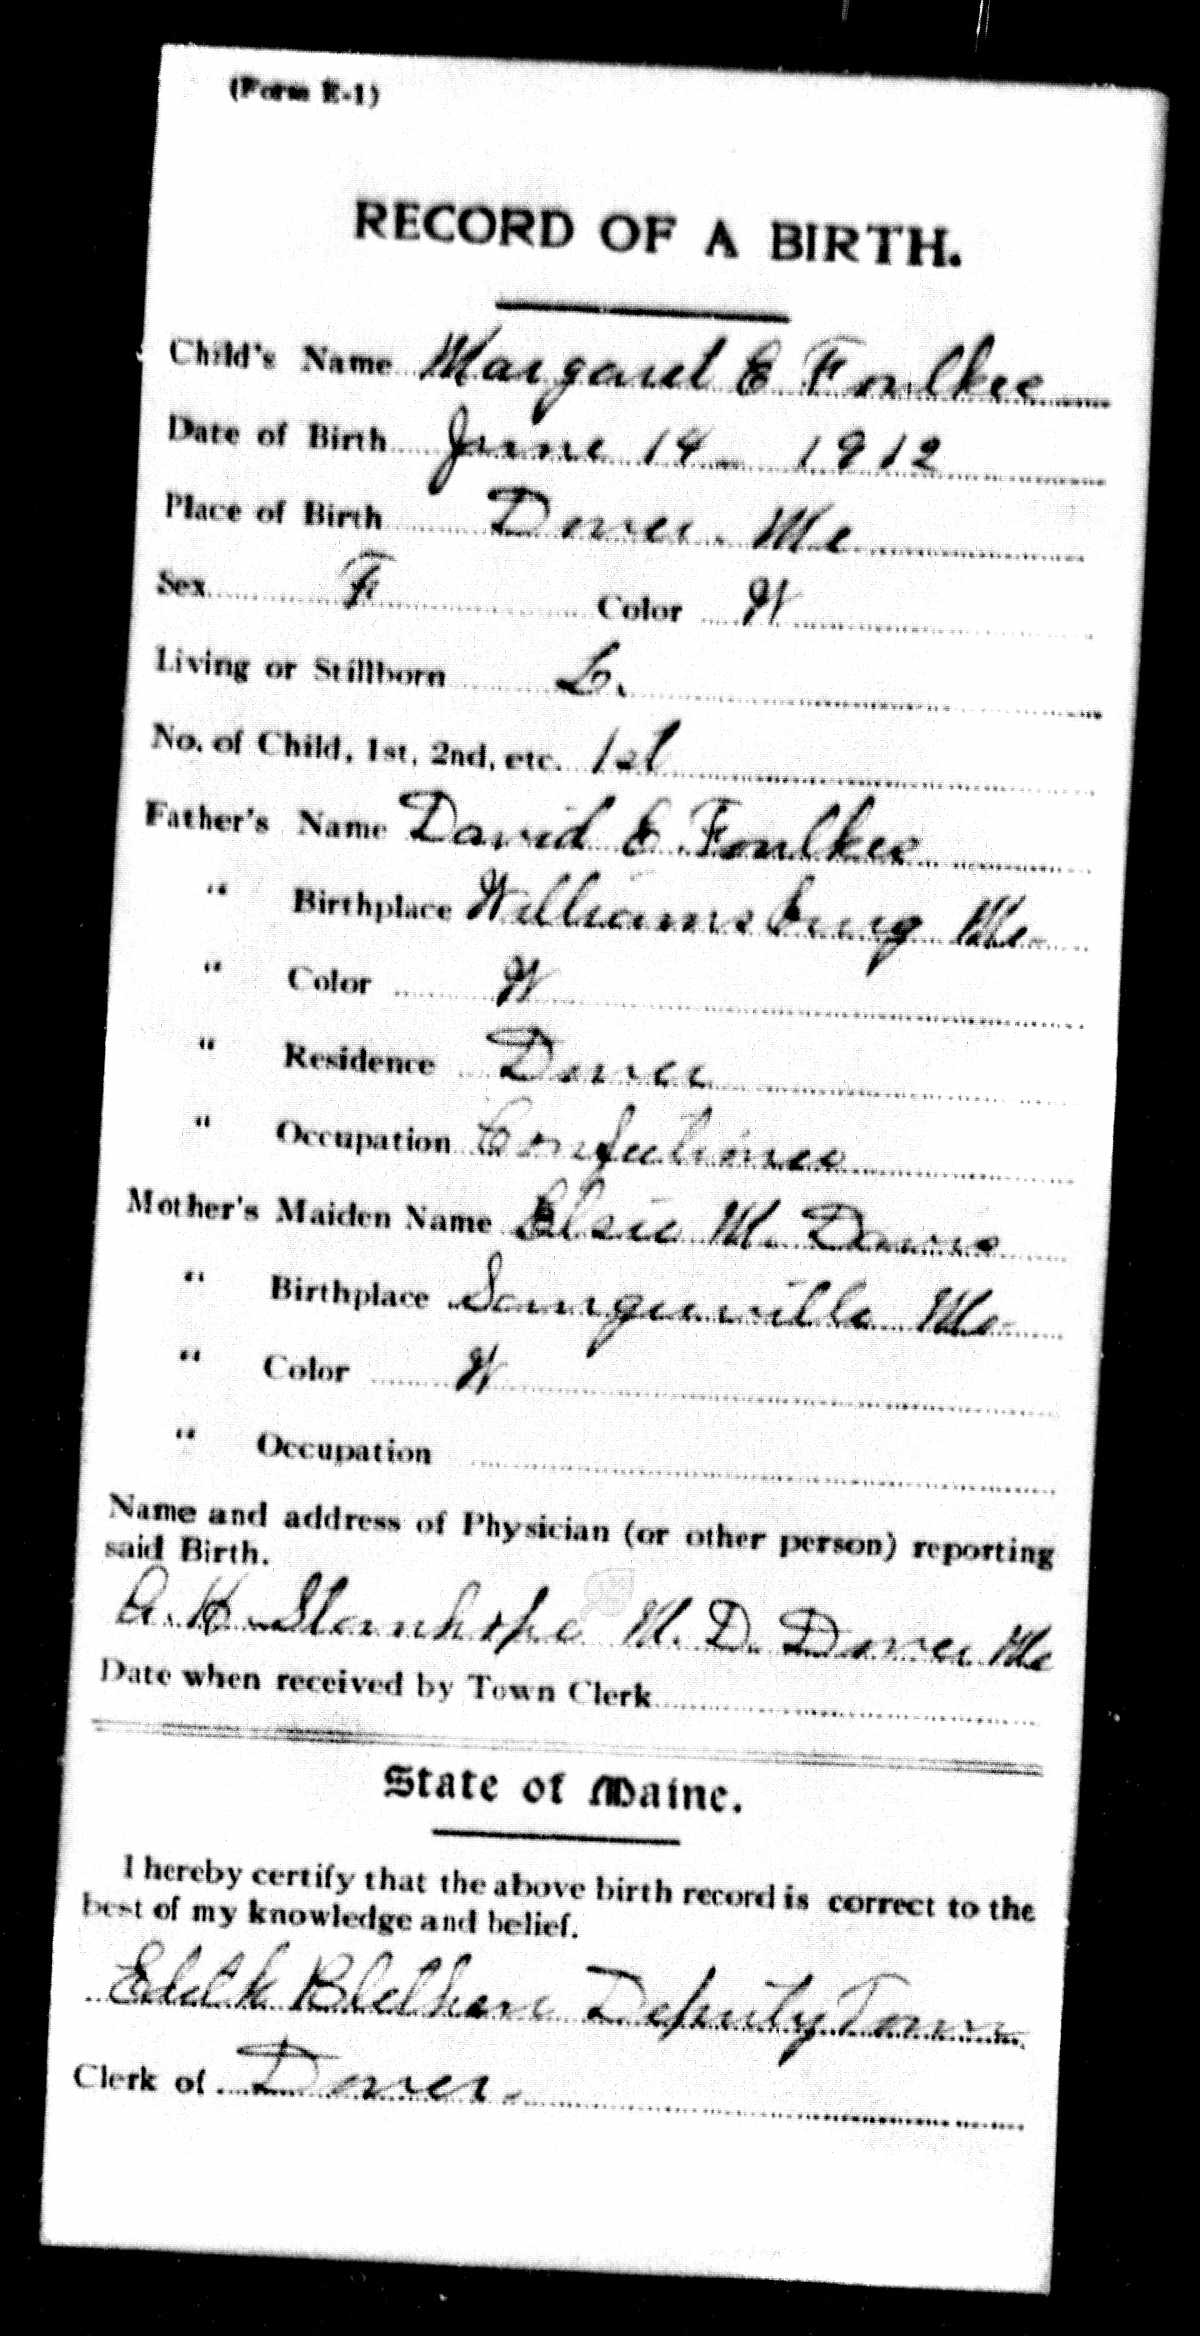 (Form E-1)
RECORD OF A BIRTH.
Child's Name Margaret E Foulkes
Date of Birth June 14 1912
Place of Birth Dover. Me
Sex F Color W
Living or Stillborn L.
No. of Child, 1st, 2nd, etc. 1st
Father's Name David E. Foulkes
" Birthplace Williamsburg Me
" Color W
" Residence Dover
" Occupation
Mother's Maiden Name Elsie M. Davis
" Birthplace Sangerville Me
" Color W
" Occupation
Name and address of Physician (or other person) reporting
said Birth.
A. H. Stanhope M. D. Dover Me
Date when received by Town Clerk
State of Maine.
I hereby certify that the above birth record is correct to the
best of my knowledge and belief.
Deputy Town
Clerk of Dover.